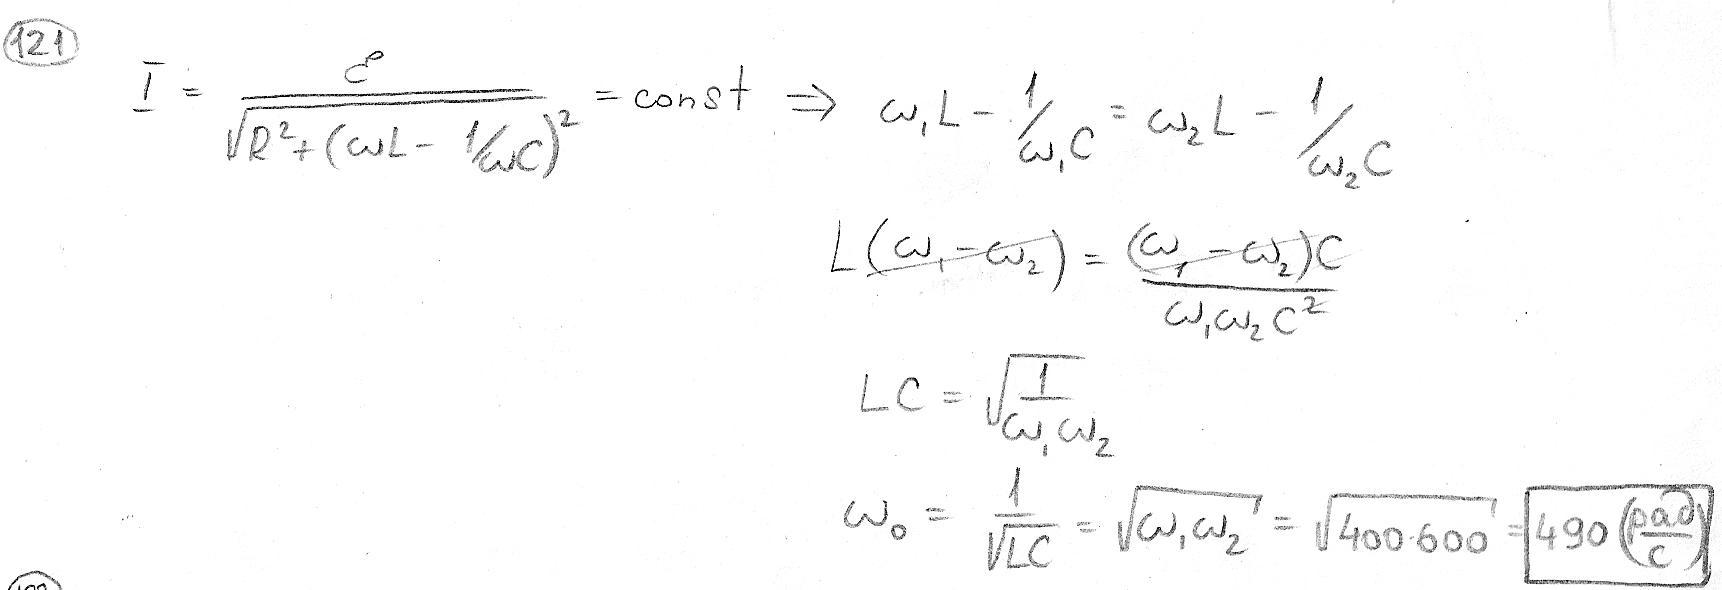 121
I = ℰ / √(R² + (ωL - 1/ωC)²) = const ⇒ ω₁L - 1/ω₁C = ω₂L - 1/ω₂C
L(ω₁ - ω₂) = (ω₁ - ω₂)C / ω₁ω₂C²
LC = √(1 / ω₁ω₂)
ω₀ = 1 / √(LC) = √(ω₁ω₂) = √(400·600) = 490 (рад/с)